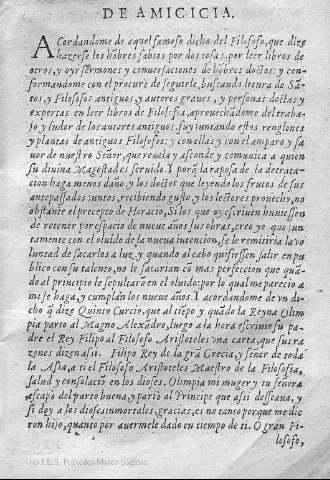 DE AMICICIA.
ACordandome de aquel famoso dicho del Filosofo, que dize
hazerse los hõbres sabios por dos cosas. por leer libros de
otros, y oyr sermones y conuersaciones de hõbres doctos: y con-
formandome con el procurè de seguirle, buscando letura de Sã-
tos, y Filosofos antiguos, y autores graues, y personas doctas y
expertas en leer libros de Filosofia, aprouechãdome del traba-
jo y sudor de los autores antiguos. fuy juntando estos renglones
y plantas de antiguos Filosofos: y con ellas y con el amparo y fa
uor de nuestro Señor, que reuela y asconde y comunica a quien
su diuina Magestad es seruido. I porq̃ la raposa de la detrata-
cion haga menos daño, y los doctos que leyendo los frutos de sus
antepassados juntos, recibiendo gusto, y los lectores prouecho, no
obstante el precepto de Horacio, Si los que oy scriuen huuiessen
de retener por espacio de nueue años sus obras, creo yo que jun
tamente con el oluido de la nueua intencion, se le remitiria la vo
luntad de sacarlos a luz. y quando al cabo quisiessen salir en pu
blico con su talento, no le sacarian cõ mas perfeccion que quã-
do al principio le sepultarõ en el oluido: por lo qual me parecio a
mi se haga, y cumplan los nueue años. I acordandome de vn
dicho q̃ dize Quinto Curcio, que al tiẽpo y quãdo la Reyna Olim
pia parto al Magno Alexãdro, luego a la hora escriuio su pa-
dre el Rey Filipo al Filosofo Aristoteles vna carta, que sus ra
zones dizen assi. Filipo Rey de la grã Grecia, y señor de toda
la Asia, a ti el Filosofo Aristoteles Maestro de la Filosofia,
salud y consolaciõ en los dioses. Olimpia mi muger y tu señora
escapò del parto buena, y pariò al Principe que assi desseaua, y
si doy a los dioses inmortales, gracias, es no tanto porque me die
ron hijo, quanto por auermele dado en tiempo de ti. O gran Fi-
losofo,
(c) I.E.S. Práxedes Mateo Sagasta